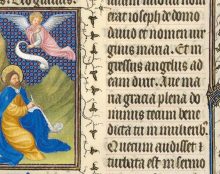 erat ioseph de domo
dauid et nomen uir
ginis maria. Et in
gressus angelus ad
eam dixit. Aue ma
ria gracia plena do
minus tecum bene
dicta tu in mulieribꝰ
Que cum audisset
turbata est in sermo